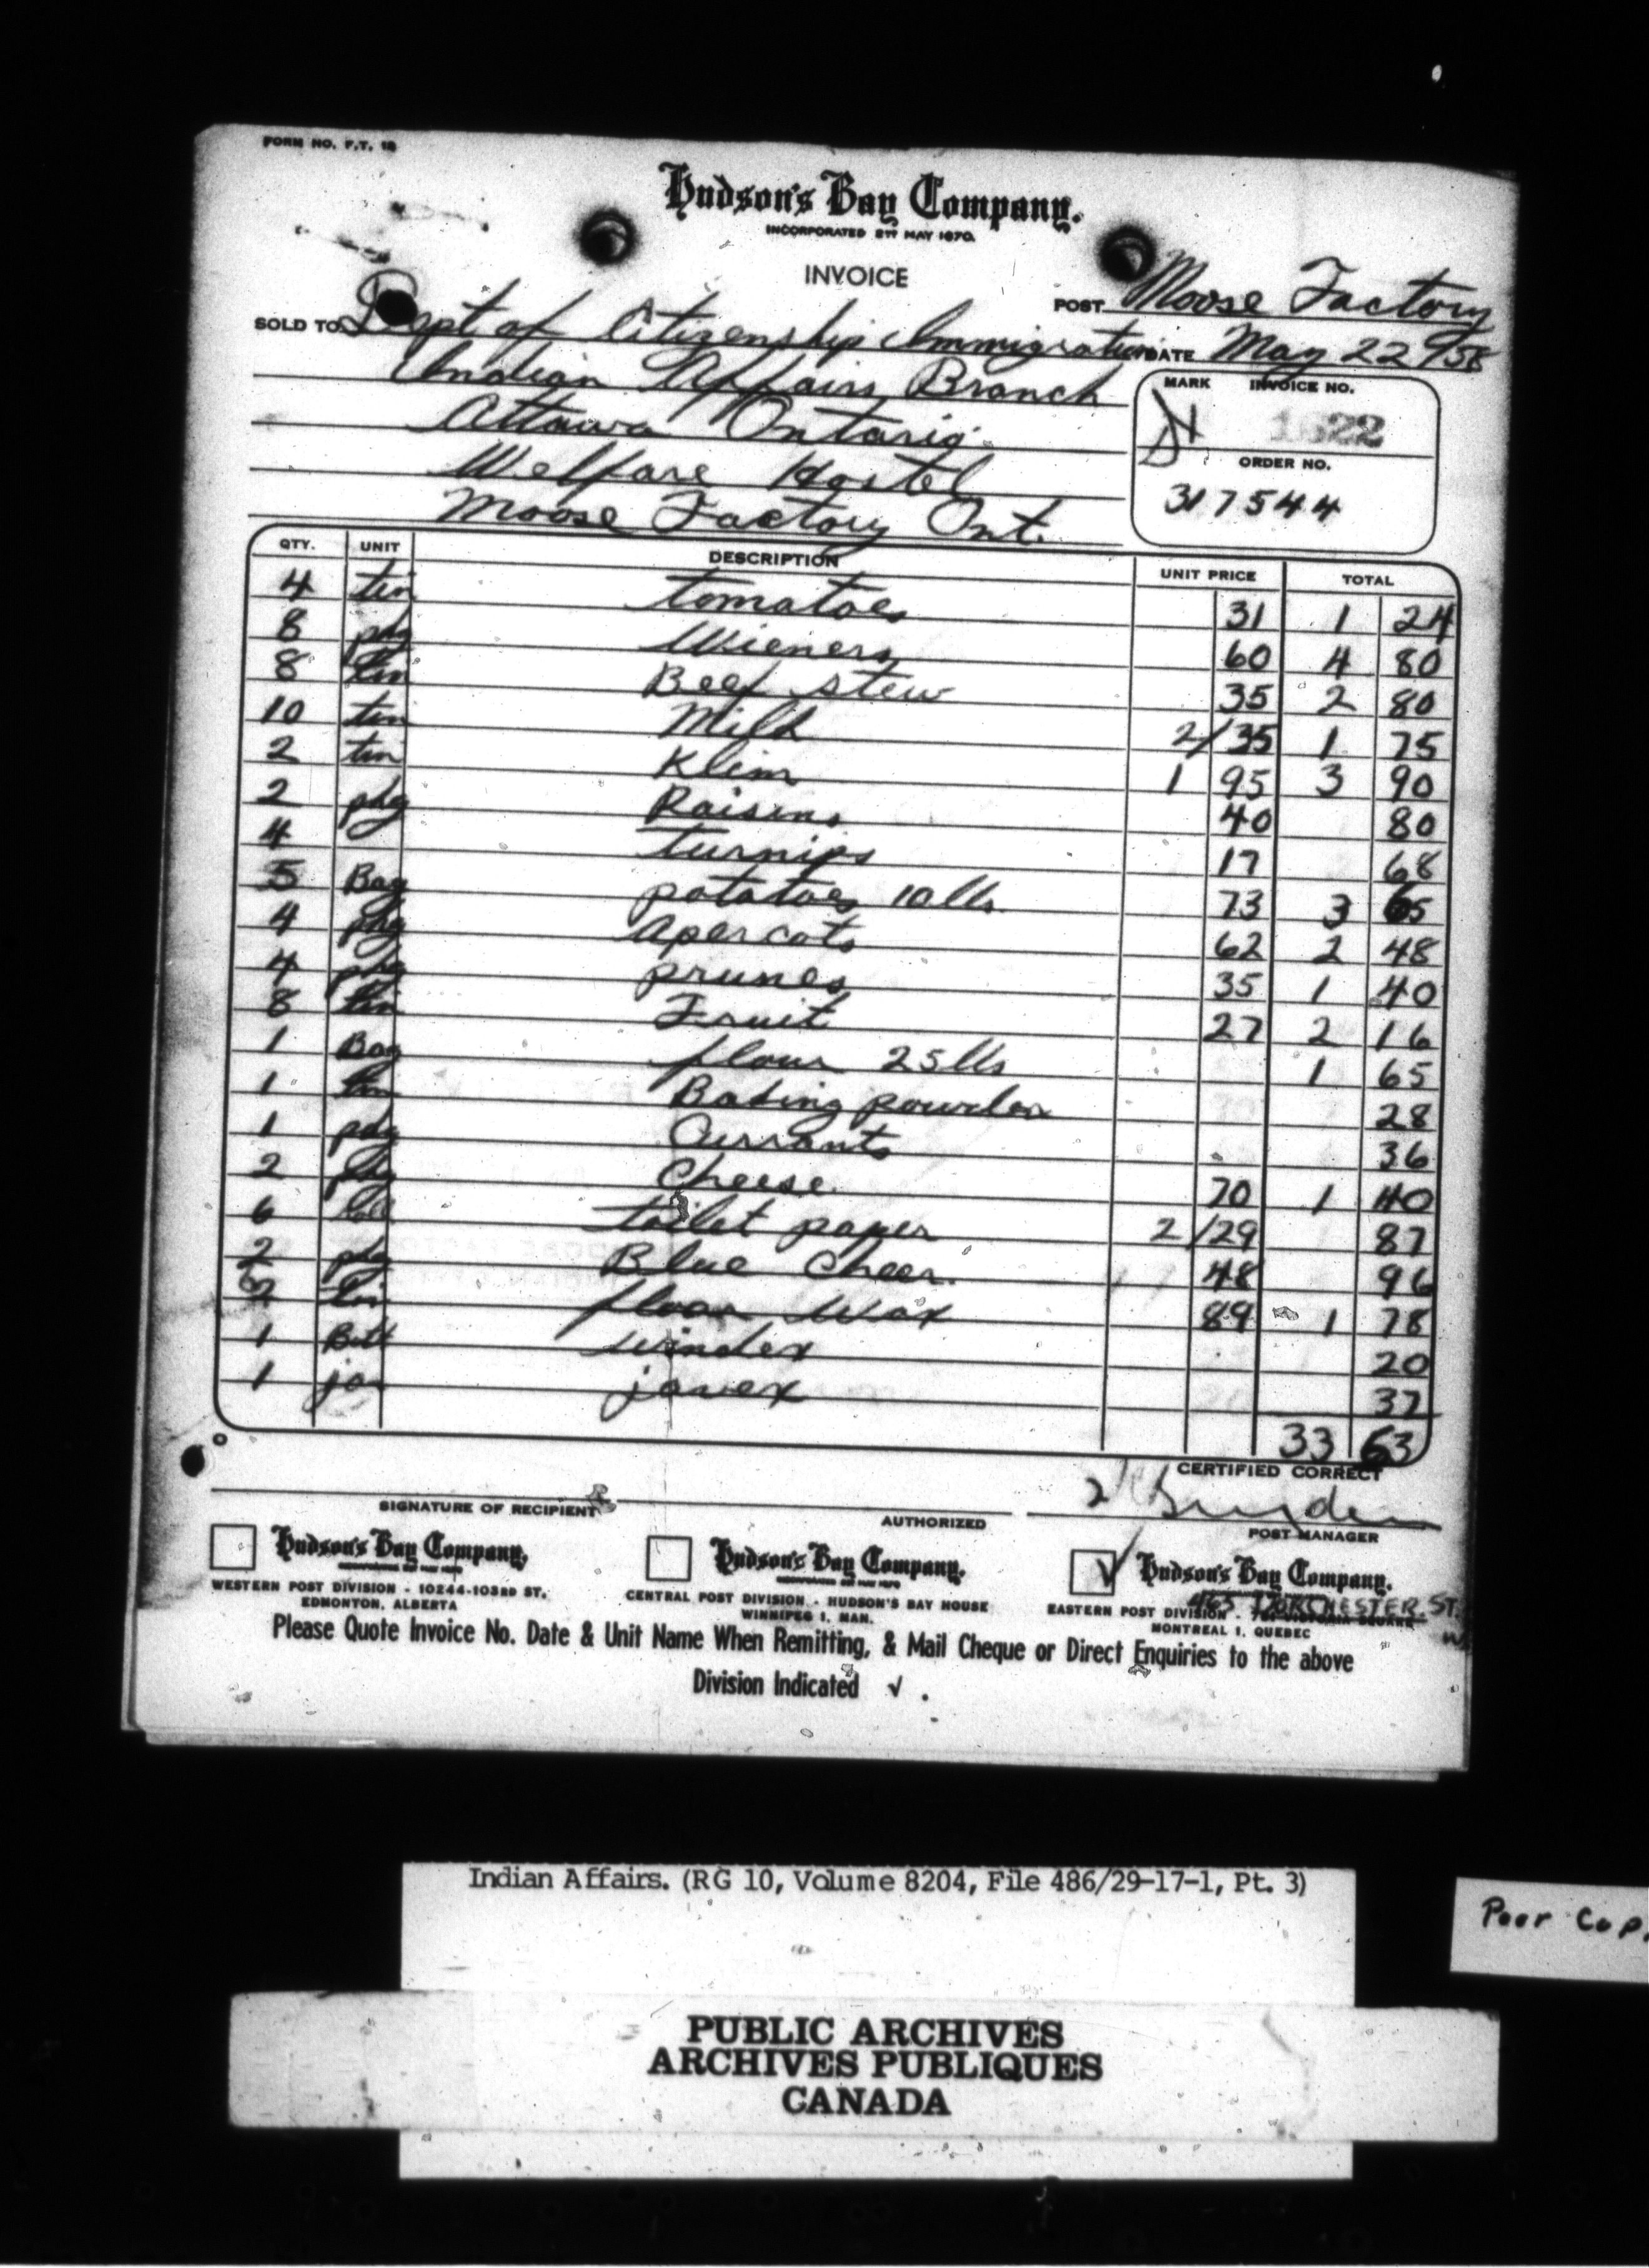 FORM NO. F.T. 18
Hudson's Bay Company.
INCORPORATED 2ND MAY 1670.
INVOICE
POST Moose Factory
SOLD TO Dept of Citizenship Immigration DATE May 22 / 58
Indian Affairs Branch
Ottawa Ontario
Welfare Hostel
Moose Factory Ont.
MARK INVOICE NO.
1622
ORDER NO.
317544
QTY. UNIT DESCRIPTION UNIT PRICE TOTAL
4 tin tomatoes 31 1 24
8 pkg Wieners 60 4 80
8 tin Beef stew 35 2 80
10 tin Milk 2/35 1 75
2 tin Klim 1 95 3 90
2 pkg Raisins 40 80
4 turnips 17 68
5 Bag potatoes 10 lbs 73 3 65
4 pkg Apercots 62 2 48
4 pkg prunes 35 1 40
8 tin Fruit 27 2 16
1 Bag flour 25 lbs 1 65
1 tin Baking powder 28
1 pkg Currants 36
2 pkg Cheese 70 1 40
6 roll toilet paper 2/29 87
2 pkg Blue Cheer 48 96
2 tin floor Wax 89 1 78
1 Bott windex 20
1 jar javex 37
33 63
CERTIFIED CORRECT
SIGNATURE OF RECIPIENT AUTHORIZED POST MANAGER
Hudson's Bay Company. Hudson's Bay Company. ✓ Hudson's Bay Company.
WESTERN POST DIVISION - 10244-103RD ST. CENTRAL POST DIVISION - HUDSON'S BAY HOUSE EASTERN POST DIVISION - 465 DORCHESTER ST. W
EDMONTON, ALBERTA WINNIPEG 1, MAN. MONTREAL 1, QUEBEC
Please Quote Invoice No. Date & Unit Name When Remitting, & Mail Cheque or Direct Enquiries to the above
Division Indicated √ .
Indian Affairs. (RG 10, Volume 8204, File 486/29-17-1, Pt. 3)
Poor Cop
PUBLIC ARCHIVES
ARCHIVES PUBLIQUES
CANADA